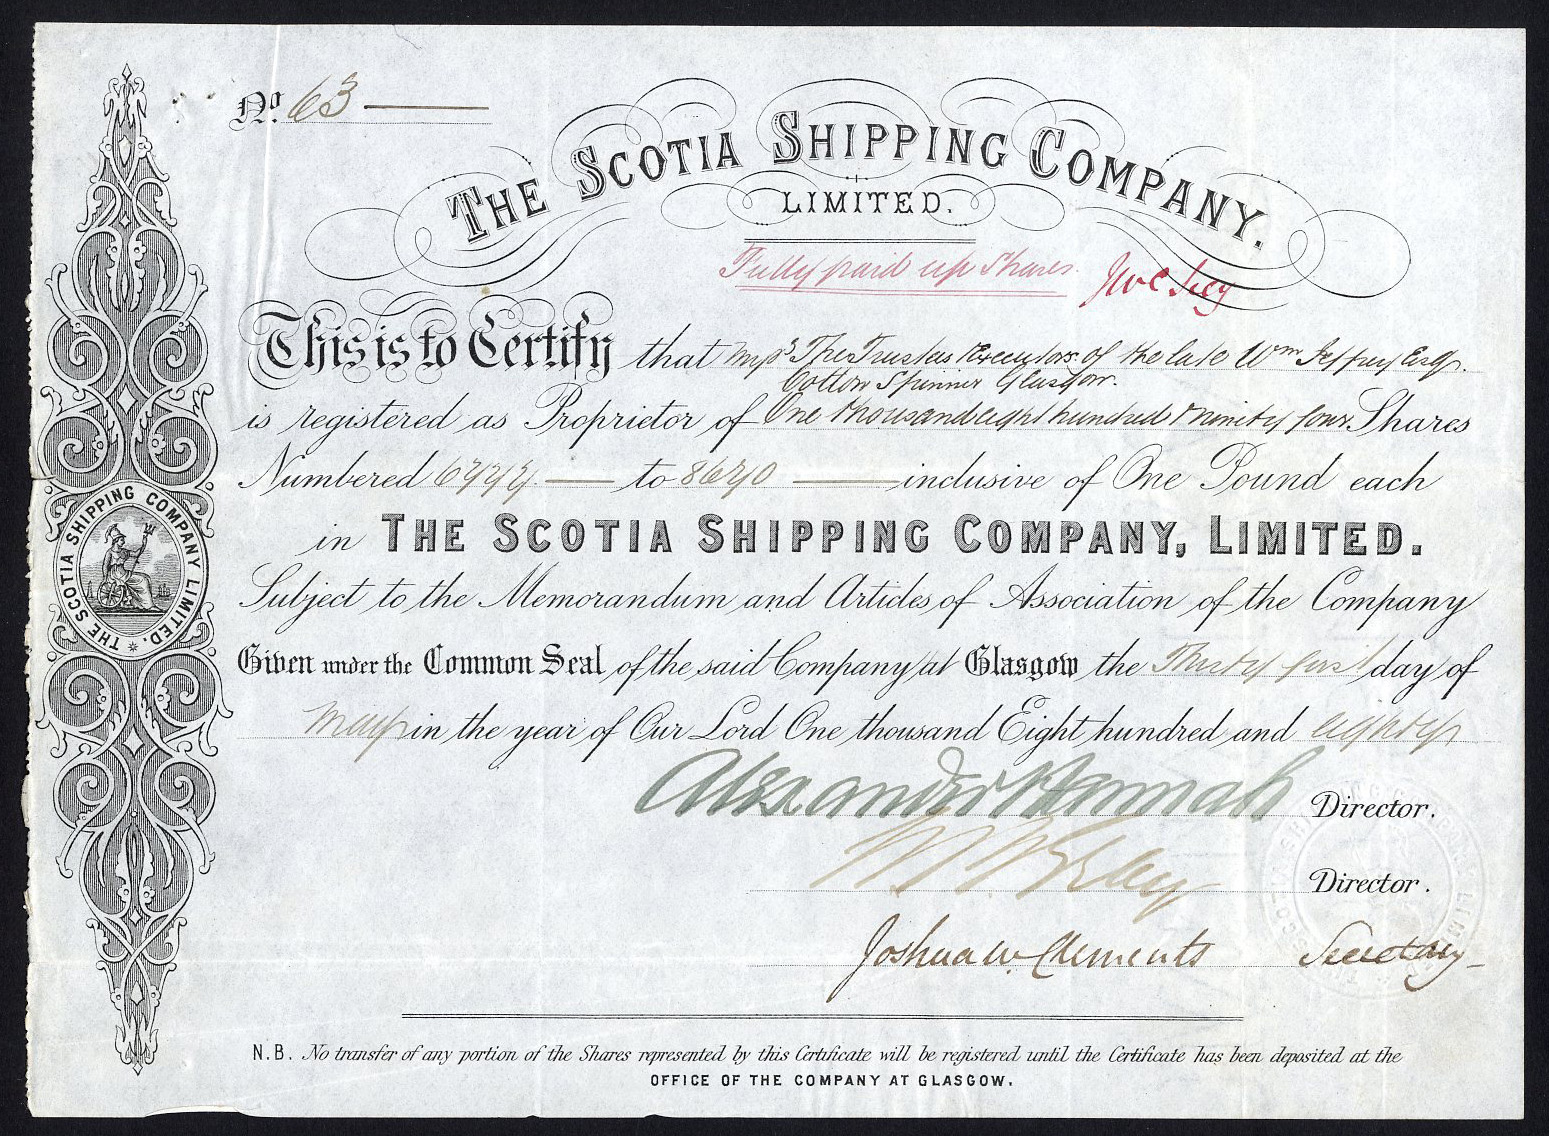 No. 63
THE SCOTIA SHIPPING COMPANY.
LIMITED.
Fully paid up Shares. JWC Secy
This is to Certify that The Trustees & Executors of the late Wm Jeffrey Esqr.
Cotton Spinner Glasgow.
is registered as Proprietor of One thousand eight hundred & ninety four Shares
Numbered 6777 to 8670 inclusive of One Pound each
in THE SCOTIA SHIPPING COMPANY, LIMITED.
Subject to the Memorandum and Articles of Association of the Company
Given under the Common Seal of the said Company at Glasgow the Thirty first day of
May in the year of Our Lord One thousand Eight hundred and eighty
Alexander Hannah Director.
Director.
Joshua W. Clements Secretary
N.B. No transfer of any portion of the Shares represented by this Certificate will be registered until the Certificate has been deposited at the
OFFICE OF THE COMPANY AT GLASGOW.
THE SCOTIA SHIPPING COMPANY LIMITED.